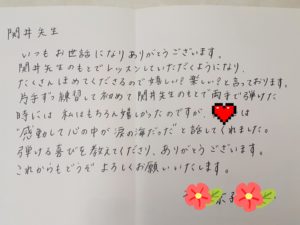 関井先生
いつもお世話になりありがとうございます。
関井先生のもとでレッスンしていただくようになり、
たくさんほめてくださるので嬉しい?楽しい?と言っております。
片手ずつ練習して初めて関井先生のもとで両手で弾けた
時には私はもちろん嬉しかったのですが、は
"感動して心の中が涙の海だった"と話してくれました。
弾ける喜びを教えてくださり、ありがとうございます。
これからもどうぞよろしくお願いいたします。
子